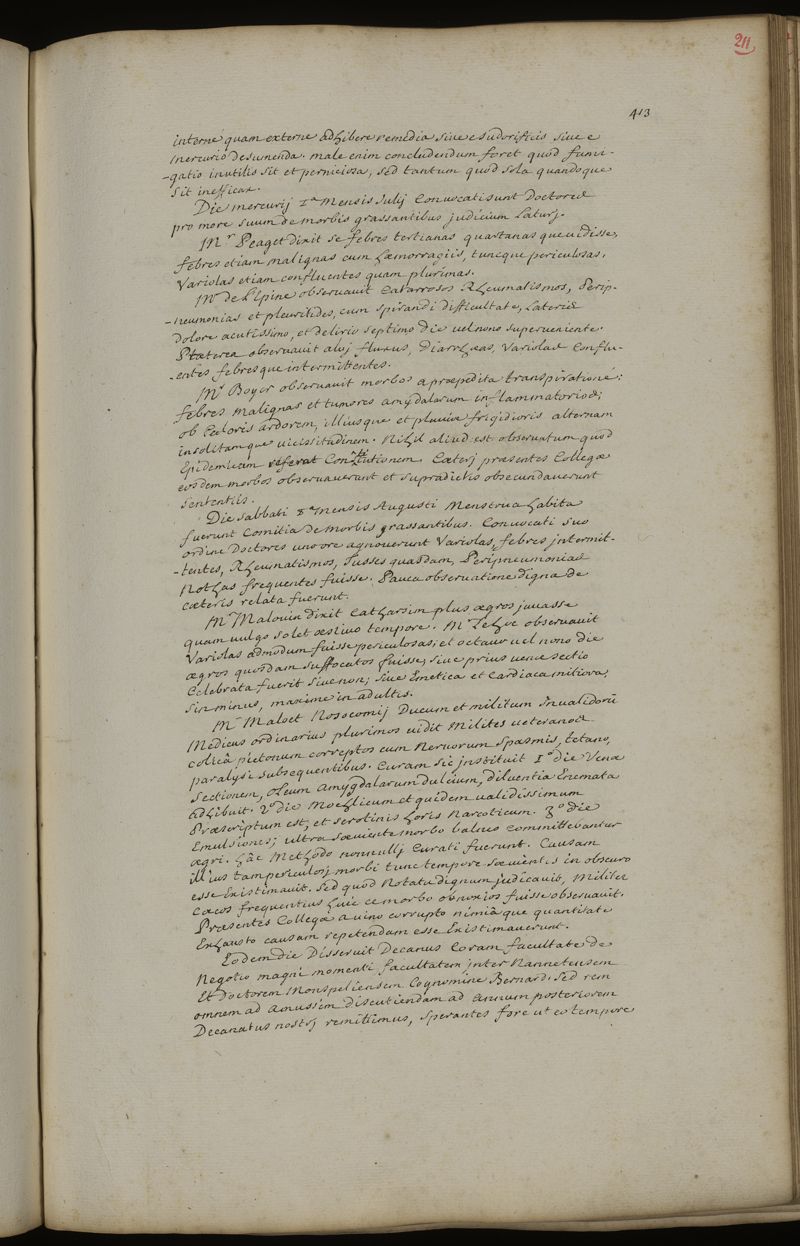 211
413
interne quam externe adhibere remedia sive e sudorificis sive e
mercurio desumenda. male enim concludendum foret quod fumi-
-gatio inutilis sit et perniciosa, sed tantum quod sola quandoque
sit inefficax.
Die mercurij 1a mensis Julij Convocati sunt Doctores
pro more suum de morbis grassantibus judicium Laturj.
Mr Peaget dixit se febres tertianas quartanas que vidisse,
febres etiam malignas cum hæmorragiis, tuncque periculosas,
Variolas etiam confluentes quam plurimas.
Mr de L'Epine observavit Catarrosos Rheumatismos, Perip-
-neumonias et pleuritides, cum spirandi difficultate, Lateris
dolore acutissimo, et delirio septimo die vel nono superveniente.
Præterea observavit alvj fluxus, Diarrhæas, Variolas Conflu-
-entes febresque intermittentes.
Mr Boyer observavit morbos a præpedita transpiratione;
febres malignas et tumores amygdalarum inflammatorios;
ob Caloris ardorem, illiusque et pluviæ frigidioris alternam
insolitamque vicissitudinem. Nihil aliud est observatum quod
Epidemicam referat Constitutionem. Cæterj præsentes Collegæ
eosdem morbos observaverunt et supradictis obsecundaverunt
sententiis.
Die sabbati 1a mensis Augusti Menstrua habita
fuerunt Comitia de morbis grassantibus. Convocati suo
ordine Doctores uno ore agnoverunt Variolas, febres intermit-
-tentes, Rheumatismos, Tusses quasdam, Peripneumonias
Nothas frequentes fuisse. Pauca observatione digna de
cæteris relata fuerunt.
Mr Malouin dixit Catharsim plus ægros juvasse
quam vulgo solet æstivo tempore. Mr observavit
Variolas admodum fuisse periculosas, et octavo vel nono die
ægros quosdam suffocatos fuisse, sive prius venæ sectio
Celebrata fuerit sive non; sive Emetica et Cardiaca mitiora,
sin minus, maxime in adultis.
Mr Maloet Nosocomij Ducum et militum Invalidorū
Medicus ordinarius plurimos vidit Milites veteranos
colicâ pictonum correptos cum Nervorum spasmis, tetano,
paralysi subsequentibus. Curam sic instituit 1o die Venæ
sectionem, oleum amygdalarum dulcium, diluentia Enemata
adhibuit. 2o die Mochlicum et quidem validissimum
Præscriptum est, et serotinis horis Narcoticum. 3o die
Emulsiones; ultra sæviente morbo balneo committebantur
ægri. hâc Methodo nonnullj Curati fuerunt. Causam
illius tam periculosj morbi tunc tempore sævientis in obscuro
esse Existimavit. Sed quod Notatu dignum judicavit, Milites
Cæcos frequentius huic ce morbo obnoxios fuisse observavit.
Præsentes Collegæ a vino corrupto nimiâ que quantitate
Exhausto causam repetendam esse Existimaverunt.
Eodem die Disseruit Decanus Coram facultate de
Negotio magni momenti facultatem inter Nannetensem
Et Doctorem Monspeliensem Cognomine Bernard. Sed rem
omnem ad amussim discutiendam ad annum posteriorem
Decanatus nostrj remittimus, sperantes fore ut eo tempore